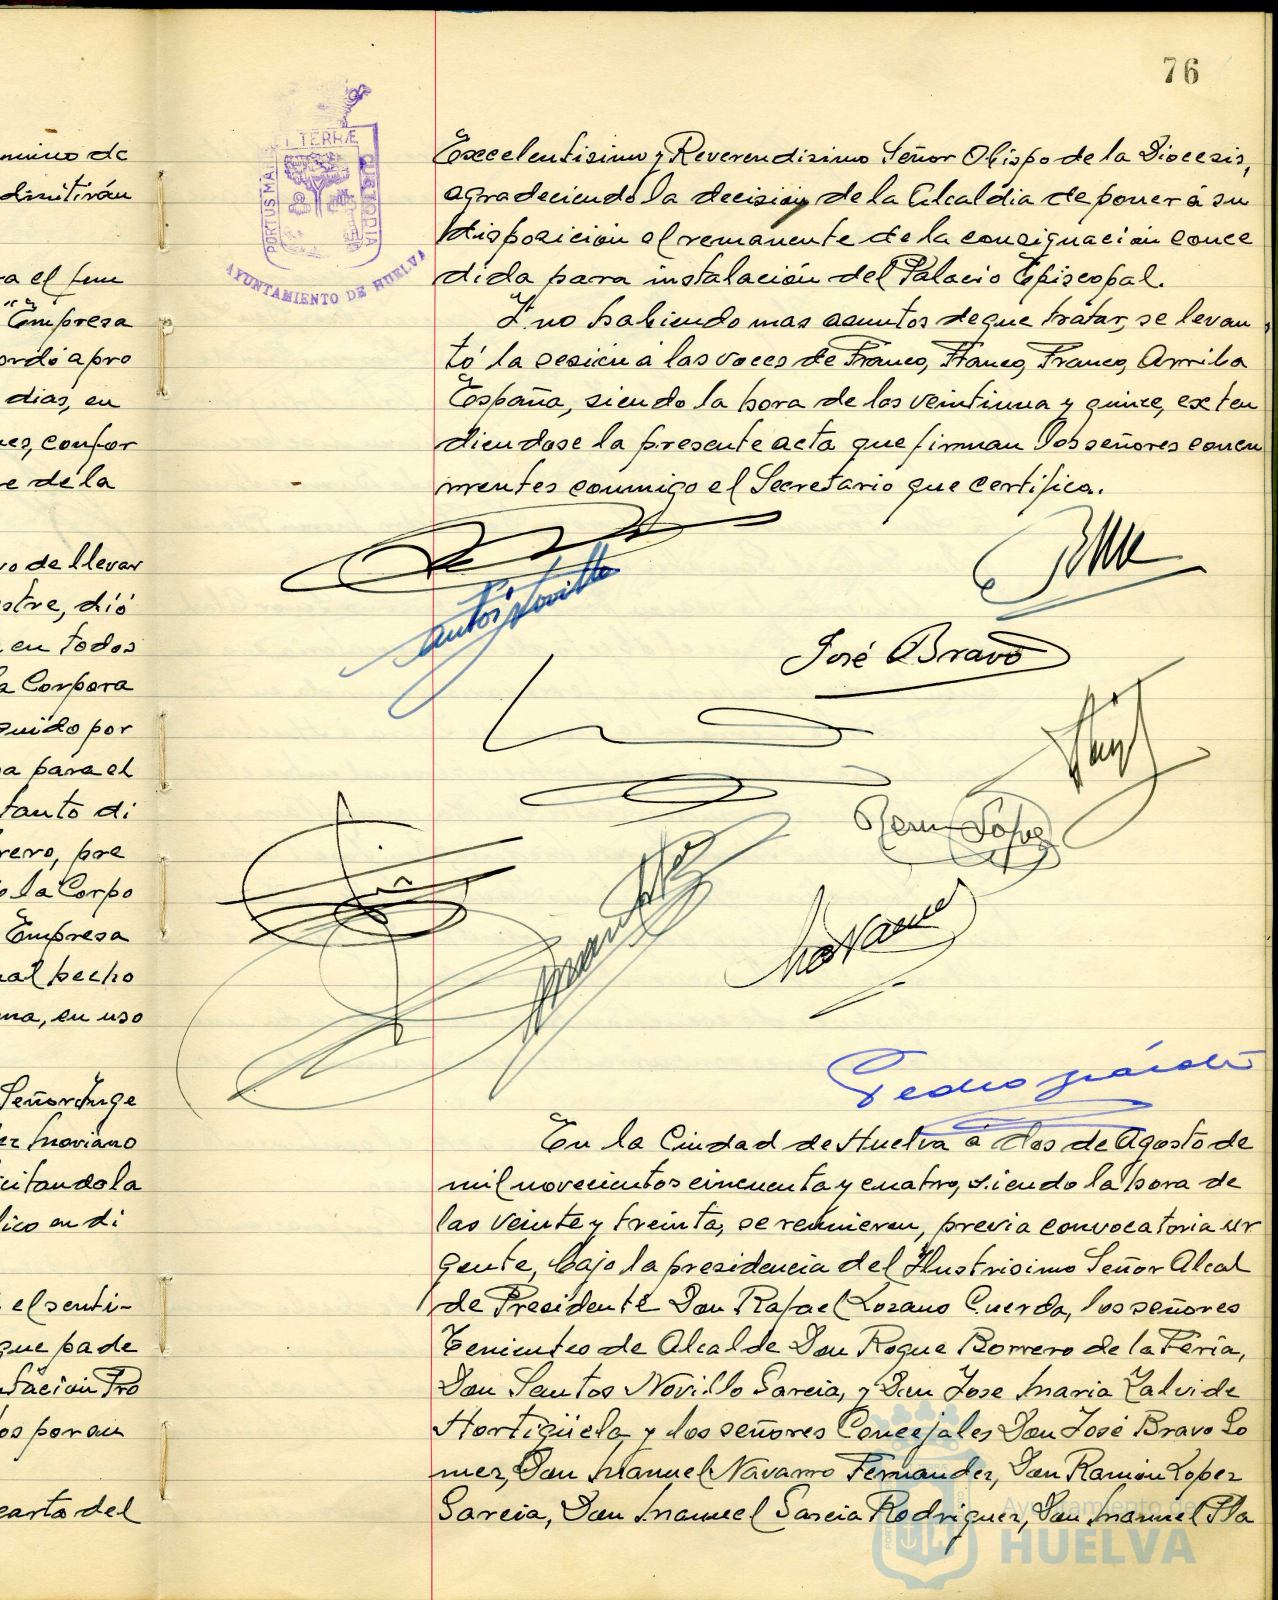 76
mino de
dimitirán
ra el
Empresa
ordó apro
dias, en
nes, confor
e de la
vo de llevar
stre, dió
en todos
a Corpora
guido por
a para el
tanto di
rero, pre
o la Corpo
Empresa
al hecho
ma, en uso
Señor Inge
ez Moriano
citandola
lico en di
el senti-
que pade
ntacion Pro
os por un
carta del
PORTUS MARIS ET TERRÆ CUSTODIA
AYUNTAMIENTO DE HUELVA
Excelentisimo y Reverendisimo Señor Obispo de la Diocesis,
agradeciendo la decision de la Alcaldía de poner á su
disposición el remanente de la consignación conce
dida para instalación del Palacio Episcopal.
Y no habiendo mas asuntos de que tratar, se levan
tó la sesión á las voces de Franco, Franco, Franco, Arriba
España, siendo la hora de las veintiuna y quince, exten
diendose la presente acta que firman los señores concu
rrentes conmigo el Secretario que certifica.
Santos Novillo
José Bravo
Ramon Lopez
Navarro
Pedro
En la Ciudad de Huelva á dos de Agosto de
mil novecientos cincuenta y cuatro, siendo la hora de
las veinte y treinta, se reunieren, previa convocatoria ur
gente, bajo la presidencia del Ilustrisimo Señor Alcal
de Presidente Don Rafael Lozano Cuerda, los señores
Tenientes de Alcalde Don Roque Borrero de la Feria,
Don Santos Novillo Garcia, y Don Jose Maria Zalvide
Hortigüela, y los señores Concejales Don José Bravo Go
mez, Don Manuel Navarro Fernandez, Don Ramon Lopez
Garcia, Don Manuel Garcia Rodriguez, Don Manuel Pla
Ayuntamiento de
HUELVA